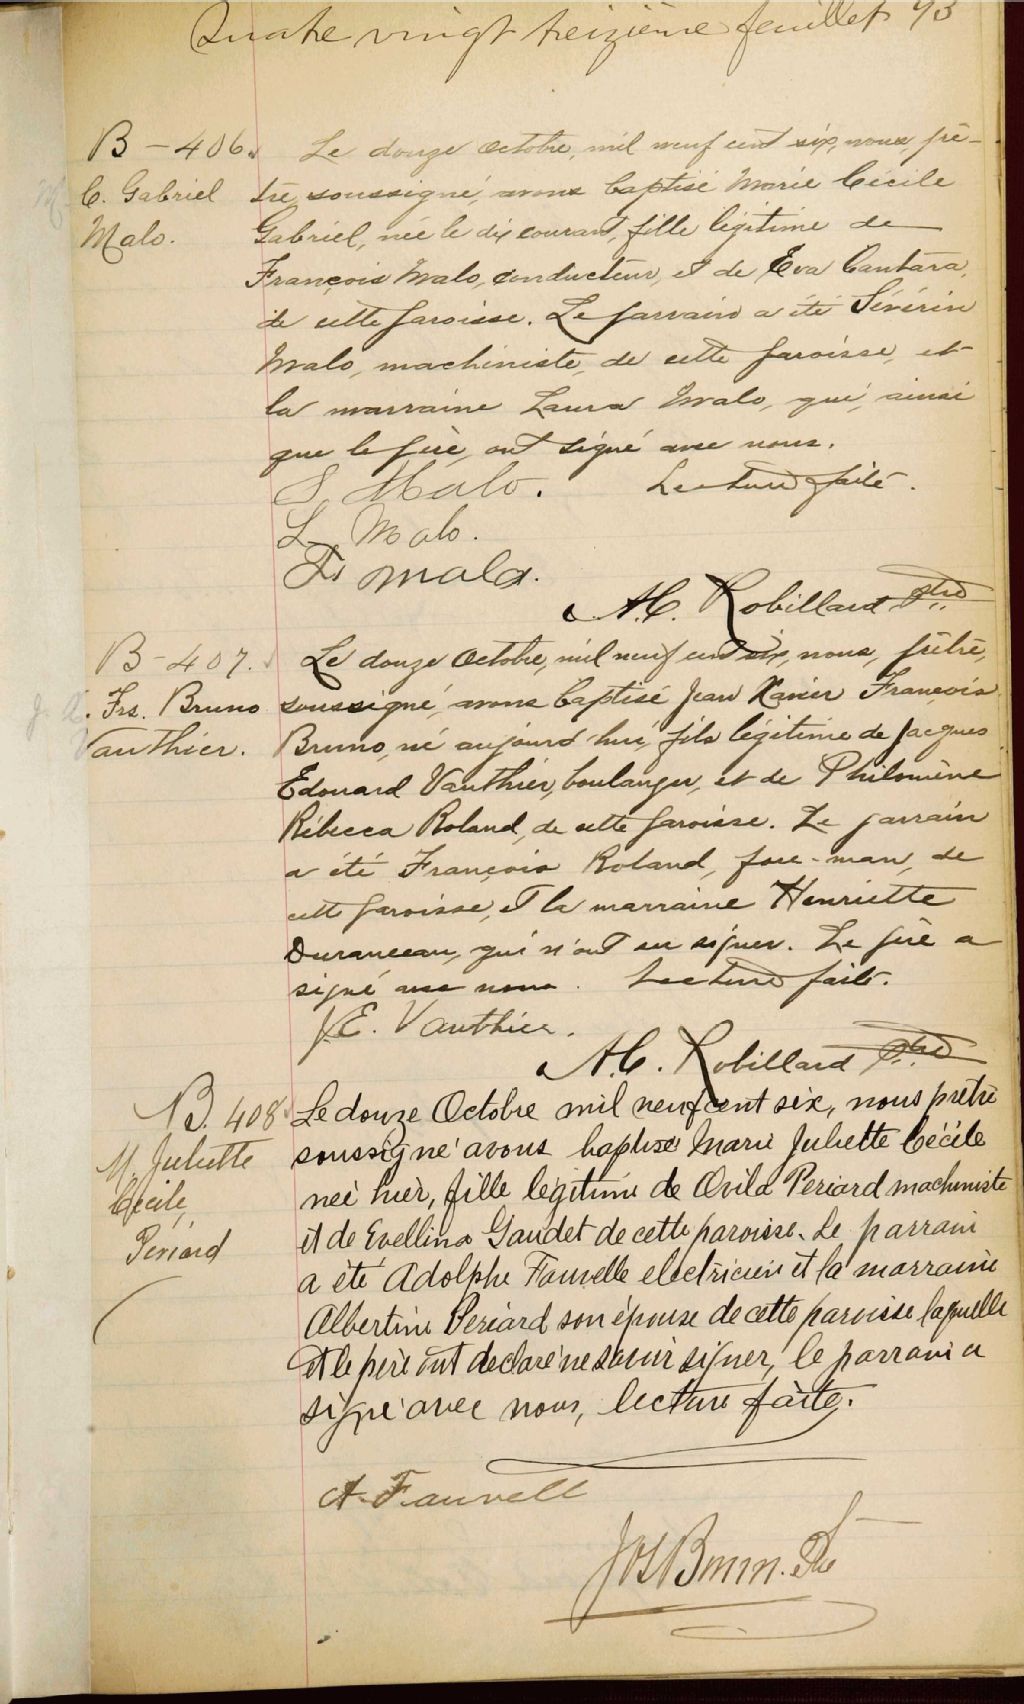 Quatre vingt treizième feuillet 93
B - 406.
M. C. Gabriel
Malo.
Le douze Octobre, mil neuf cent six, nous prê-
tre soussigné, avons baptisé Marie Cécile
Gabriel, née le dix courant, fille légitime de
François Malo, conducteur, et de Eva Cantara,
de cette paroisse. Le parrain a été Sévérin
Malo, machiniste, de cette paroisse, et
la marraine Laura Malo, qui, ainsi
que le père, ont signé avec nous.
S. Malo. Lecture faite.
L. Malo.
Fs Malo.
A.C. Robillard ptre
B - 407.
J. X. Frs. Bruno
Vauthier.
Le douze Octobre, mil neuf cent six, nous, prêtre,
soussigné, avons baptisé Jean Xavier François
Bruno, né aujourd'hui, fils légitime de Jacques
Edouard Vauthier, boulanger, et de Philomène
Rébecca Roland, de cette paroisse. Le parrain
a été François Roland, fore-man, de
cette paroisse, et la marraine Henriette
Duranceau, qui n'ont su signer. Le père a
signé avec nous. Lecture faite.
J.E. Vauthier.
A.C. Robillard ptre
B. 408
M. Juliette
Cécile,
Periard
Le douze Octobre mil neuf cent six, nous prêtre
soussigné avons baptisé Marie Juliette Cécile
neé hier, fille légitime de Ovila Periard machiniste
et de Evellina Gaudet de cette paroisse. Le parrain
a été Adolphe Fauvelle electricien et la marraine
Albertine Periard son épouse de cette paroisse laquelle
et le père ont declaré ne savoir signer, le parrain a
signé avec nous, lecture faite.
A. Fauvell